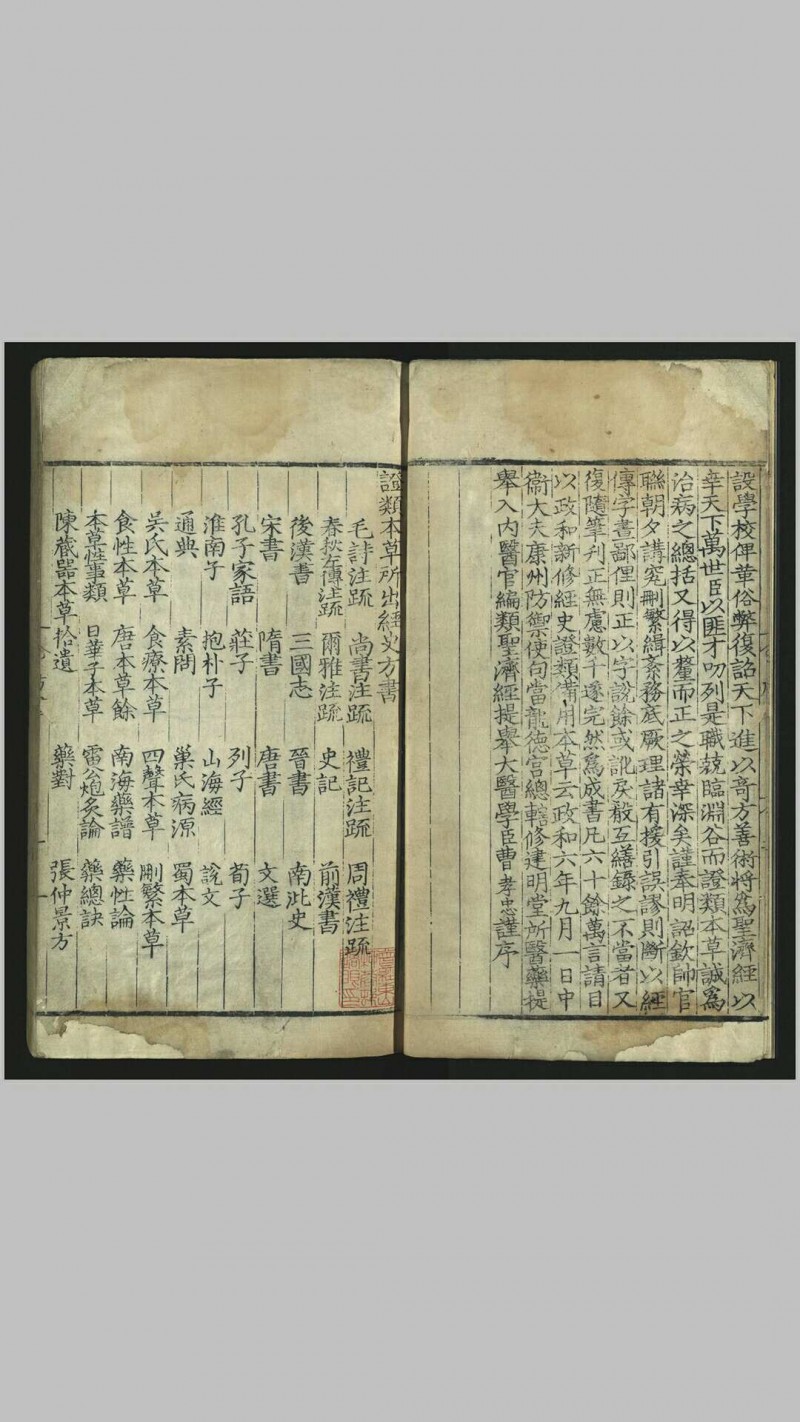 設學校俾革俗弊復詔天下進以奇方善術將為聖濟經以
幸天下萬世臣以匪才叨列是職兢臨淵谷而證類本草誠為
治病之總括又得以釐而正之榮幸深矣謹奉明詔欽帥官
聯朝夕講究刪繁緝紊務底厥理諸有援引誤謬則斷以經
傳字畫鄙俚則正以字說餘或訛戾敵互繕錄之不當者又
復隨筆刊正無慮數千遂完然為成書凡六十餘萬言請目
以政和新修經史證類備用本草云政和六年九月一日中
衞大夫康州防禦使句當龍德宮總轄修建明堂所醫藥提
舉入內醫官編類聖濟經提舉大醫學臣曹孝忠謹序
證類本草所出經史方書
毛詩注疏 尚書注疏 禮記注疏 周禮注疏
春秋左傳注疏 爾雅注疏 史記 前漢書
後漢書 三國志 晉書 南北史
宋書 隋書 唐書 文選
孔子家語 莊子 列子 荀子
淮南子 抱朴子 山海經 說文
通典 素問 巢氏病源 蜀本草
吳氏本草 食療本草 四聲本草 刪繁本草
食性本草 唐本草餘 南海藥譜 藥性論
本草性事類 日華子本草 雷公炮炙論 藥總訣
陳藏器本草拾遺 藥對 張仲景方